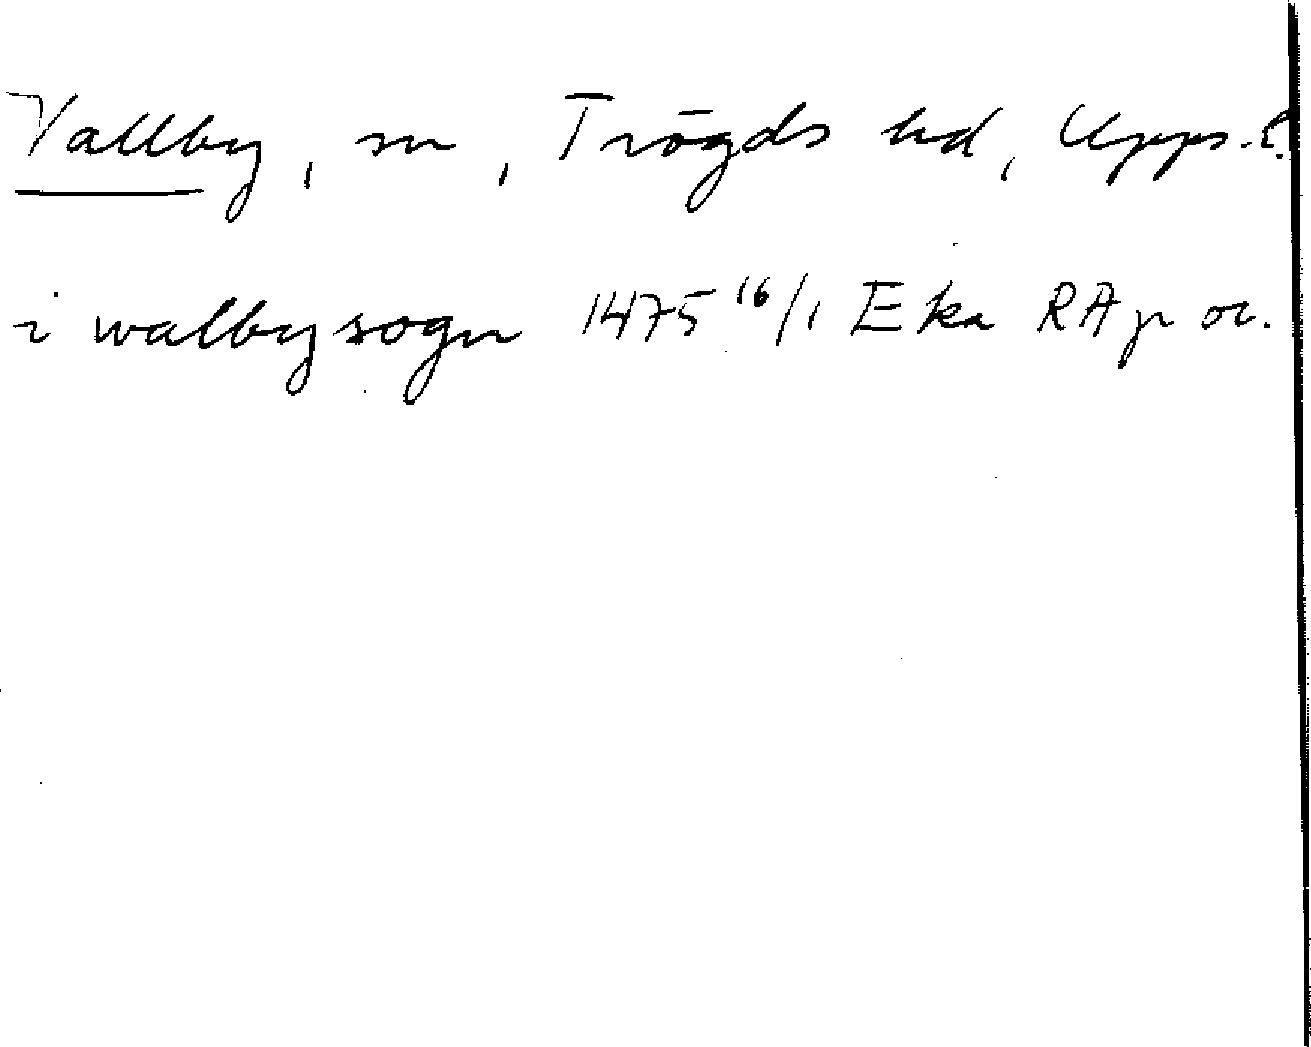 Vallby, sn, Trögds hd, Upps. l.
i walby sogn 1475 16/1 Eka RAp or.